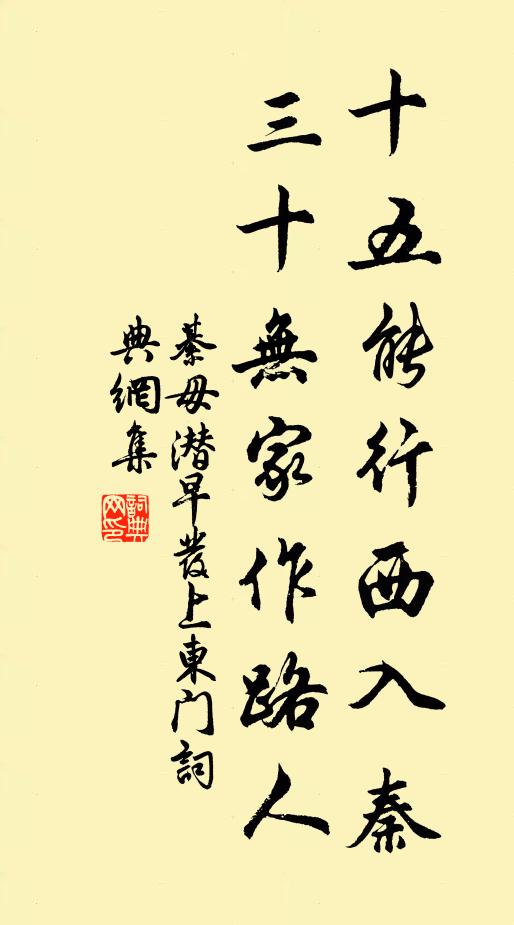 十五能行西入秦
三十無家作路人
綦毋潛早發上東門詞
典網集
詞典網印